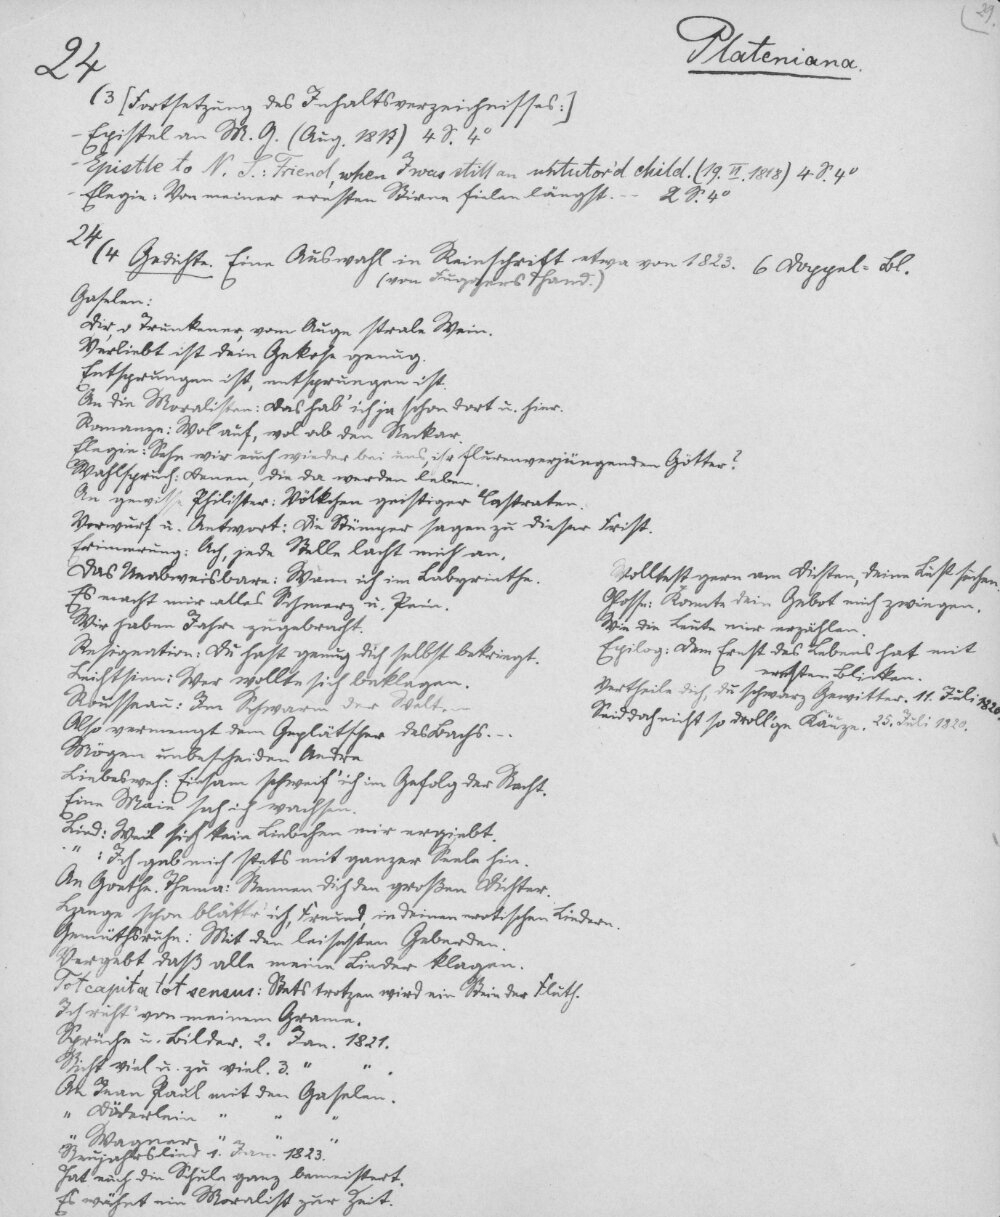 29.
Plateniana.
24
(3 [Fortsetzung des Inhaltsverzeichnisses:]
- Epistel an M. G. (Aug. 1813) 4 S. 4°
- Epistle to N. S.: Friend, when I was still an untutor'd child. (19. VI. 1818) 4 S. 4°
- Elegie: Von meiner ersten Stirne fielen längst. -- 2 S. 4°
24 (4 Gedichte. Eine Auswahl in Reinschrift etwa von 1823. 6 Doppel-Bl.
(von Fuggers Hand.)
Gaselen:
Dir, o Trunkener, vom Auge strale Wein.
Verliebt ist dein Gekose genug.
Entsprungen ist, entsprungen ist.
An die Moralisten: Das hab' ich ja schon dort u. hier.
Romanze: Wol auf, wol ab den Neckar.
Elegie: Sehn wir euch wieder bei uns, ihr flurenverjüngenden Götter?
Wahlspruch: Denen, die da werden leben.
An gewisse Philister: Völkchen geistiger Castraten.
Vorwurf u. Antwort: Die Stümper sagen zu dieser Frist.
Erinnerung: Ach, jede Stelle lacht mich an.
Das Unabweisbare: Wann ich im Labyrinthe.
Es macht mir alles Schmerz u. Pein.
Wir haben Jahre zugebracht.
Resignation: Du hast genug dich selbst bekriegt.
Leichtsinn: Wer wollte sich beklagen.
Rousseau: Im Schwarm der Welten
Also vermengt dem Geplätscher des Bachs...
Mögen unbescheiden Andre
Liebesweh: Einsam schweif' ich im Gefolg der Nacht.
Eine Maie sah ich wachsen.
Lied: Weil sich kein Liebchen mir ergiebt.
" : Ich gab mich stets mit ganzer Seele hin.
An Goethe. Thema: Nennen dich den großen Dichter.
Lange schon blättr' ich, Freund, in deinen erotischen Liedern.
Gemüthsruhe: Mit den leisesten Geberden.
Vergebt daß alle meine Lieder klagen.
Tot capita tot sensus: Stets trotzen wird ein Stein der Fluth.
Ich ruht' von meinem Grame.
Sprüche u. Bilder. 2. Jan. 1821.
Nicht viel u. zu viel. 3. " " .
An Jean Paul mit den Gaselen.
" Döderlein " " "
" Wagner " " "
Neujahrslied 1. Jan. 1823.
Hat euch die Schule ganz bemeistert.
Es wähnt ein Moralist zur Zeit.
Wolltest gern am Dichten deine Lust suchen.
Glosse: Konnte dein Gebot mich zwingen.
Wie die Leute mir erzählen.
Epilog: Dem Ernst des Lebens hat mit
ernsten Blicken.
Vertheile dich, du schwarz Gewitter. 11. Juli 1820
Seid doch nicht so drollige Käuze. 25. Juli 1820.